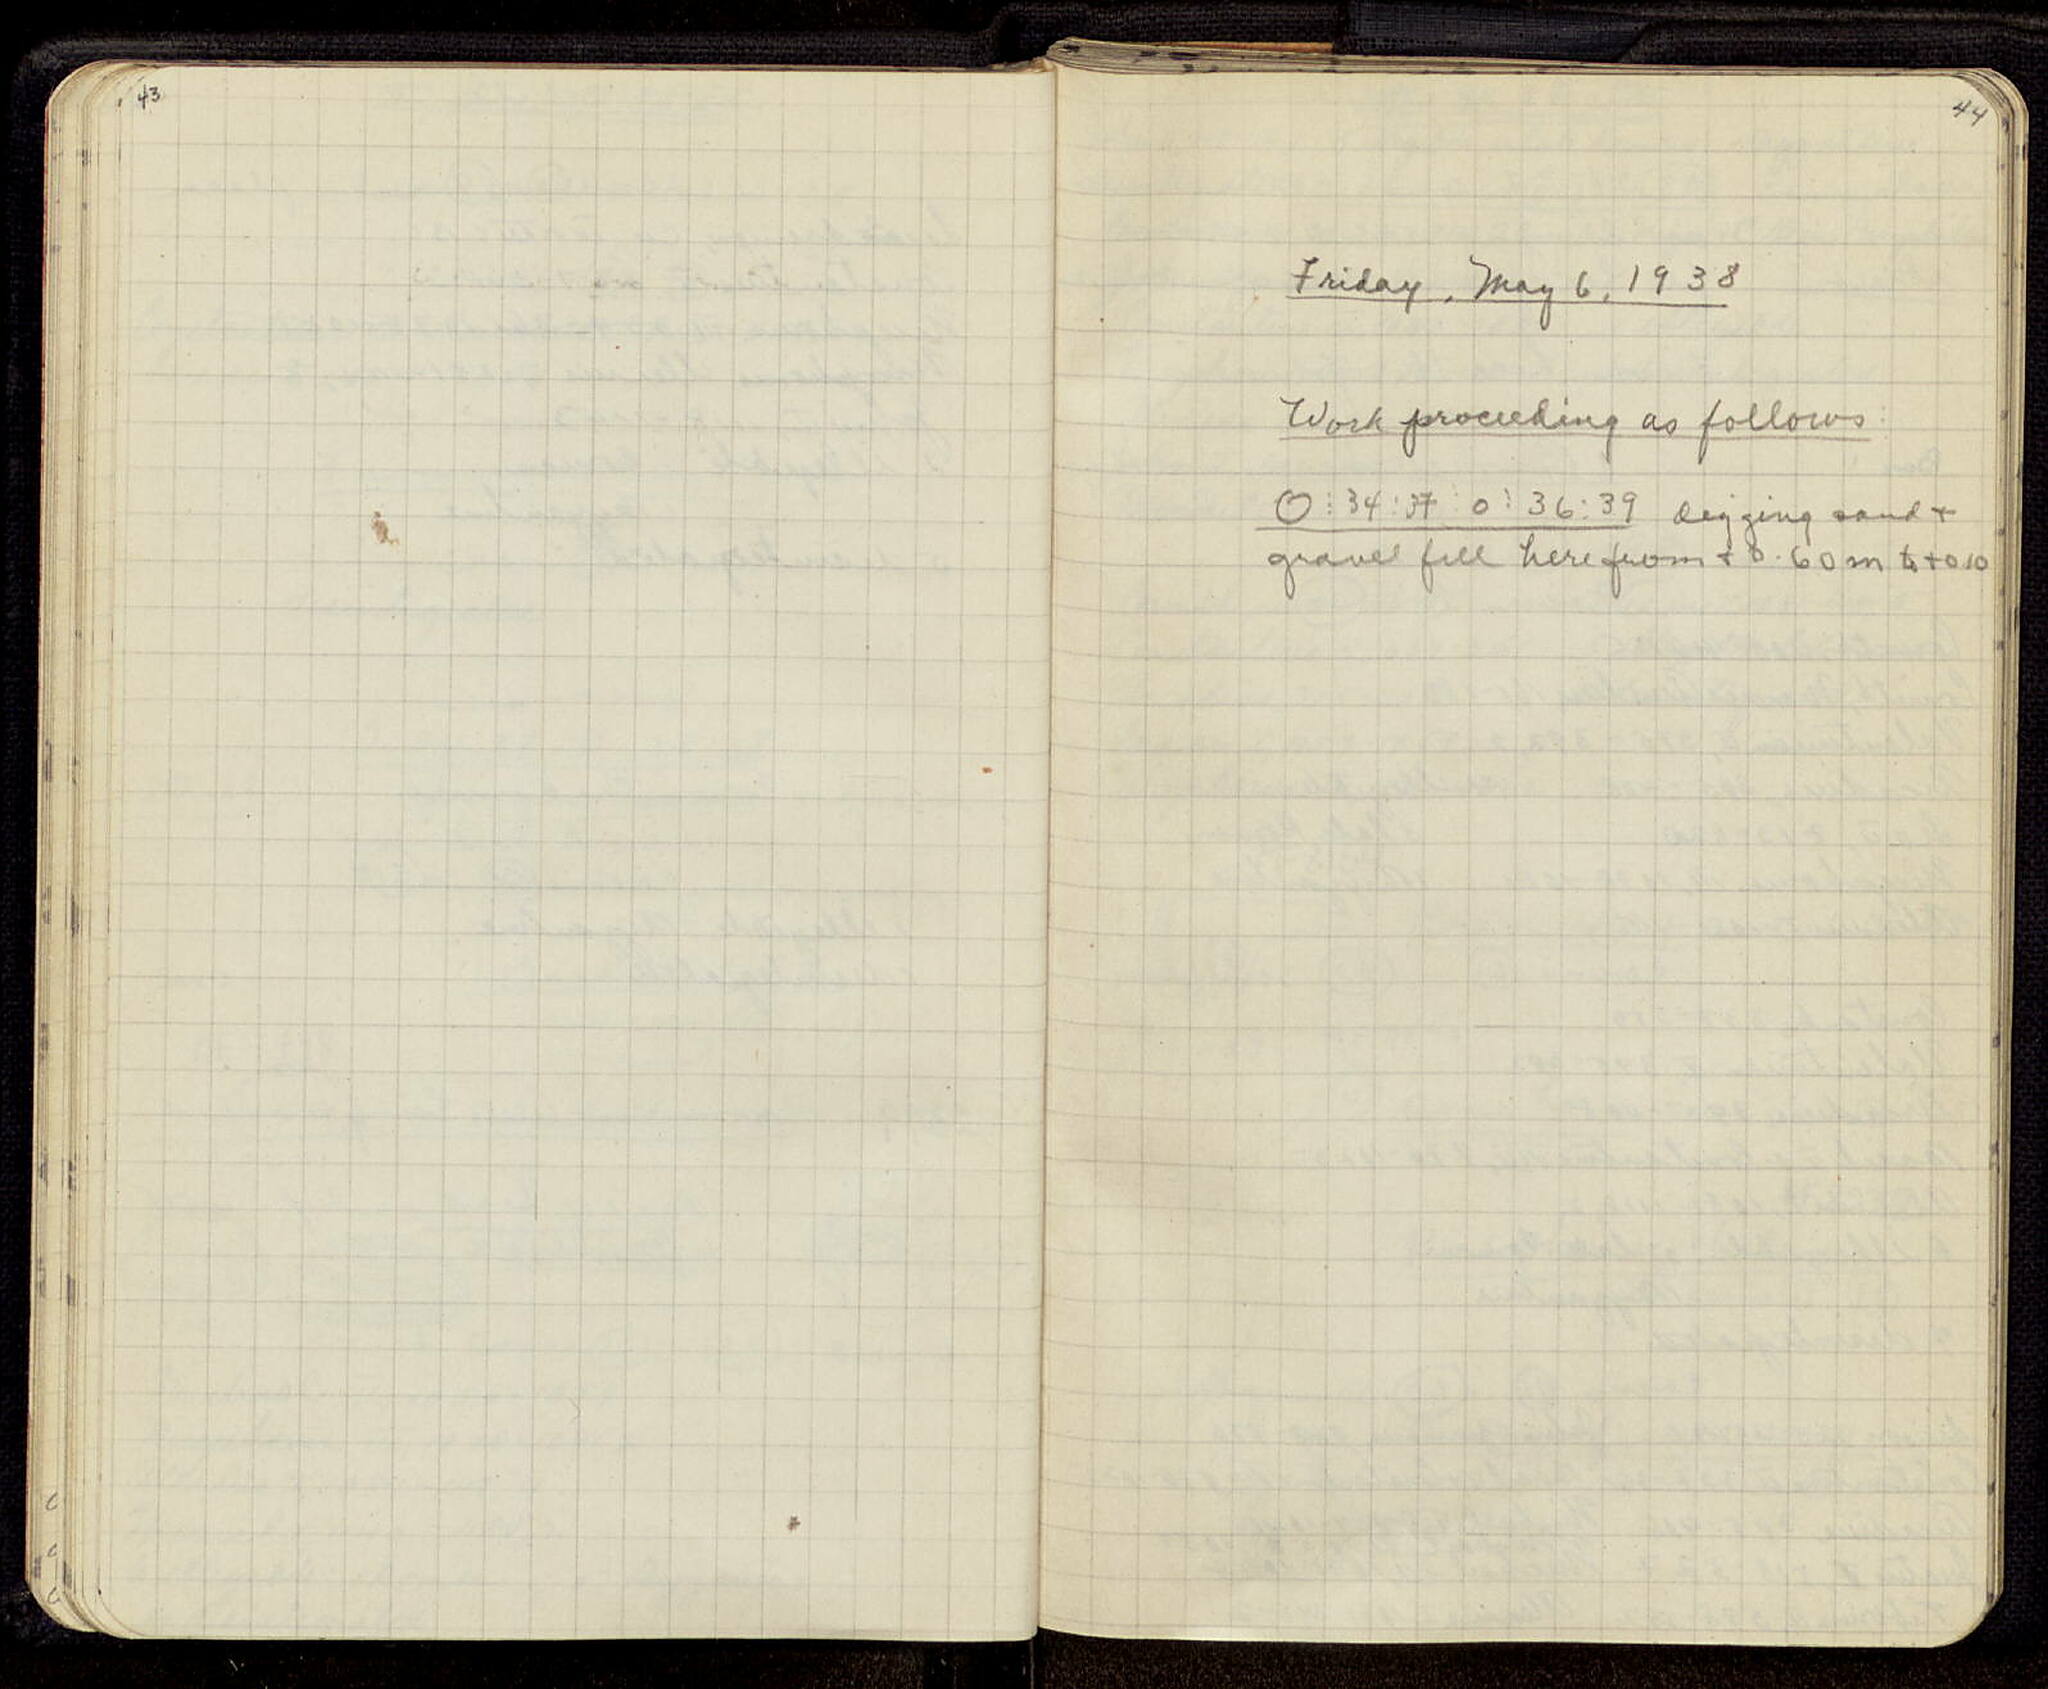 43
44
Friday, May 6, 1938
Work proceeding as follows:
O:34:37 0:36:39 digging sand +
gravel fill here from + 0.60 m to + 0.10